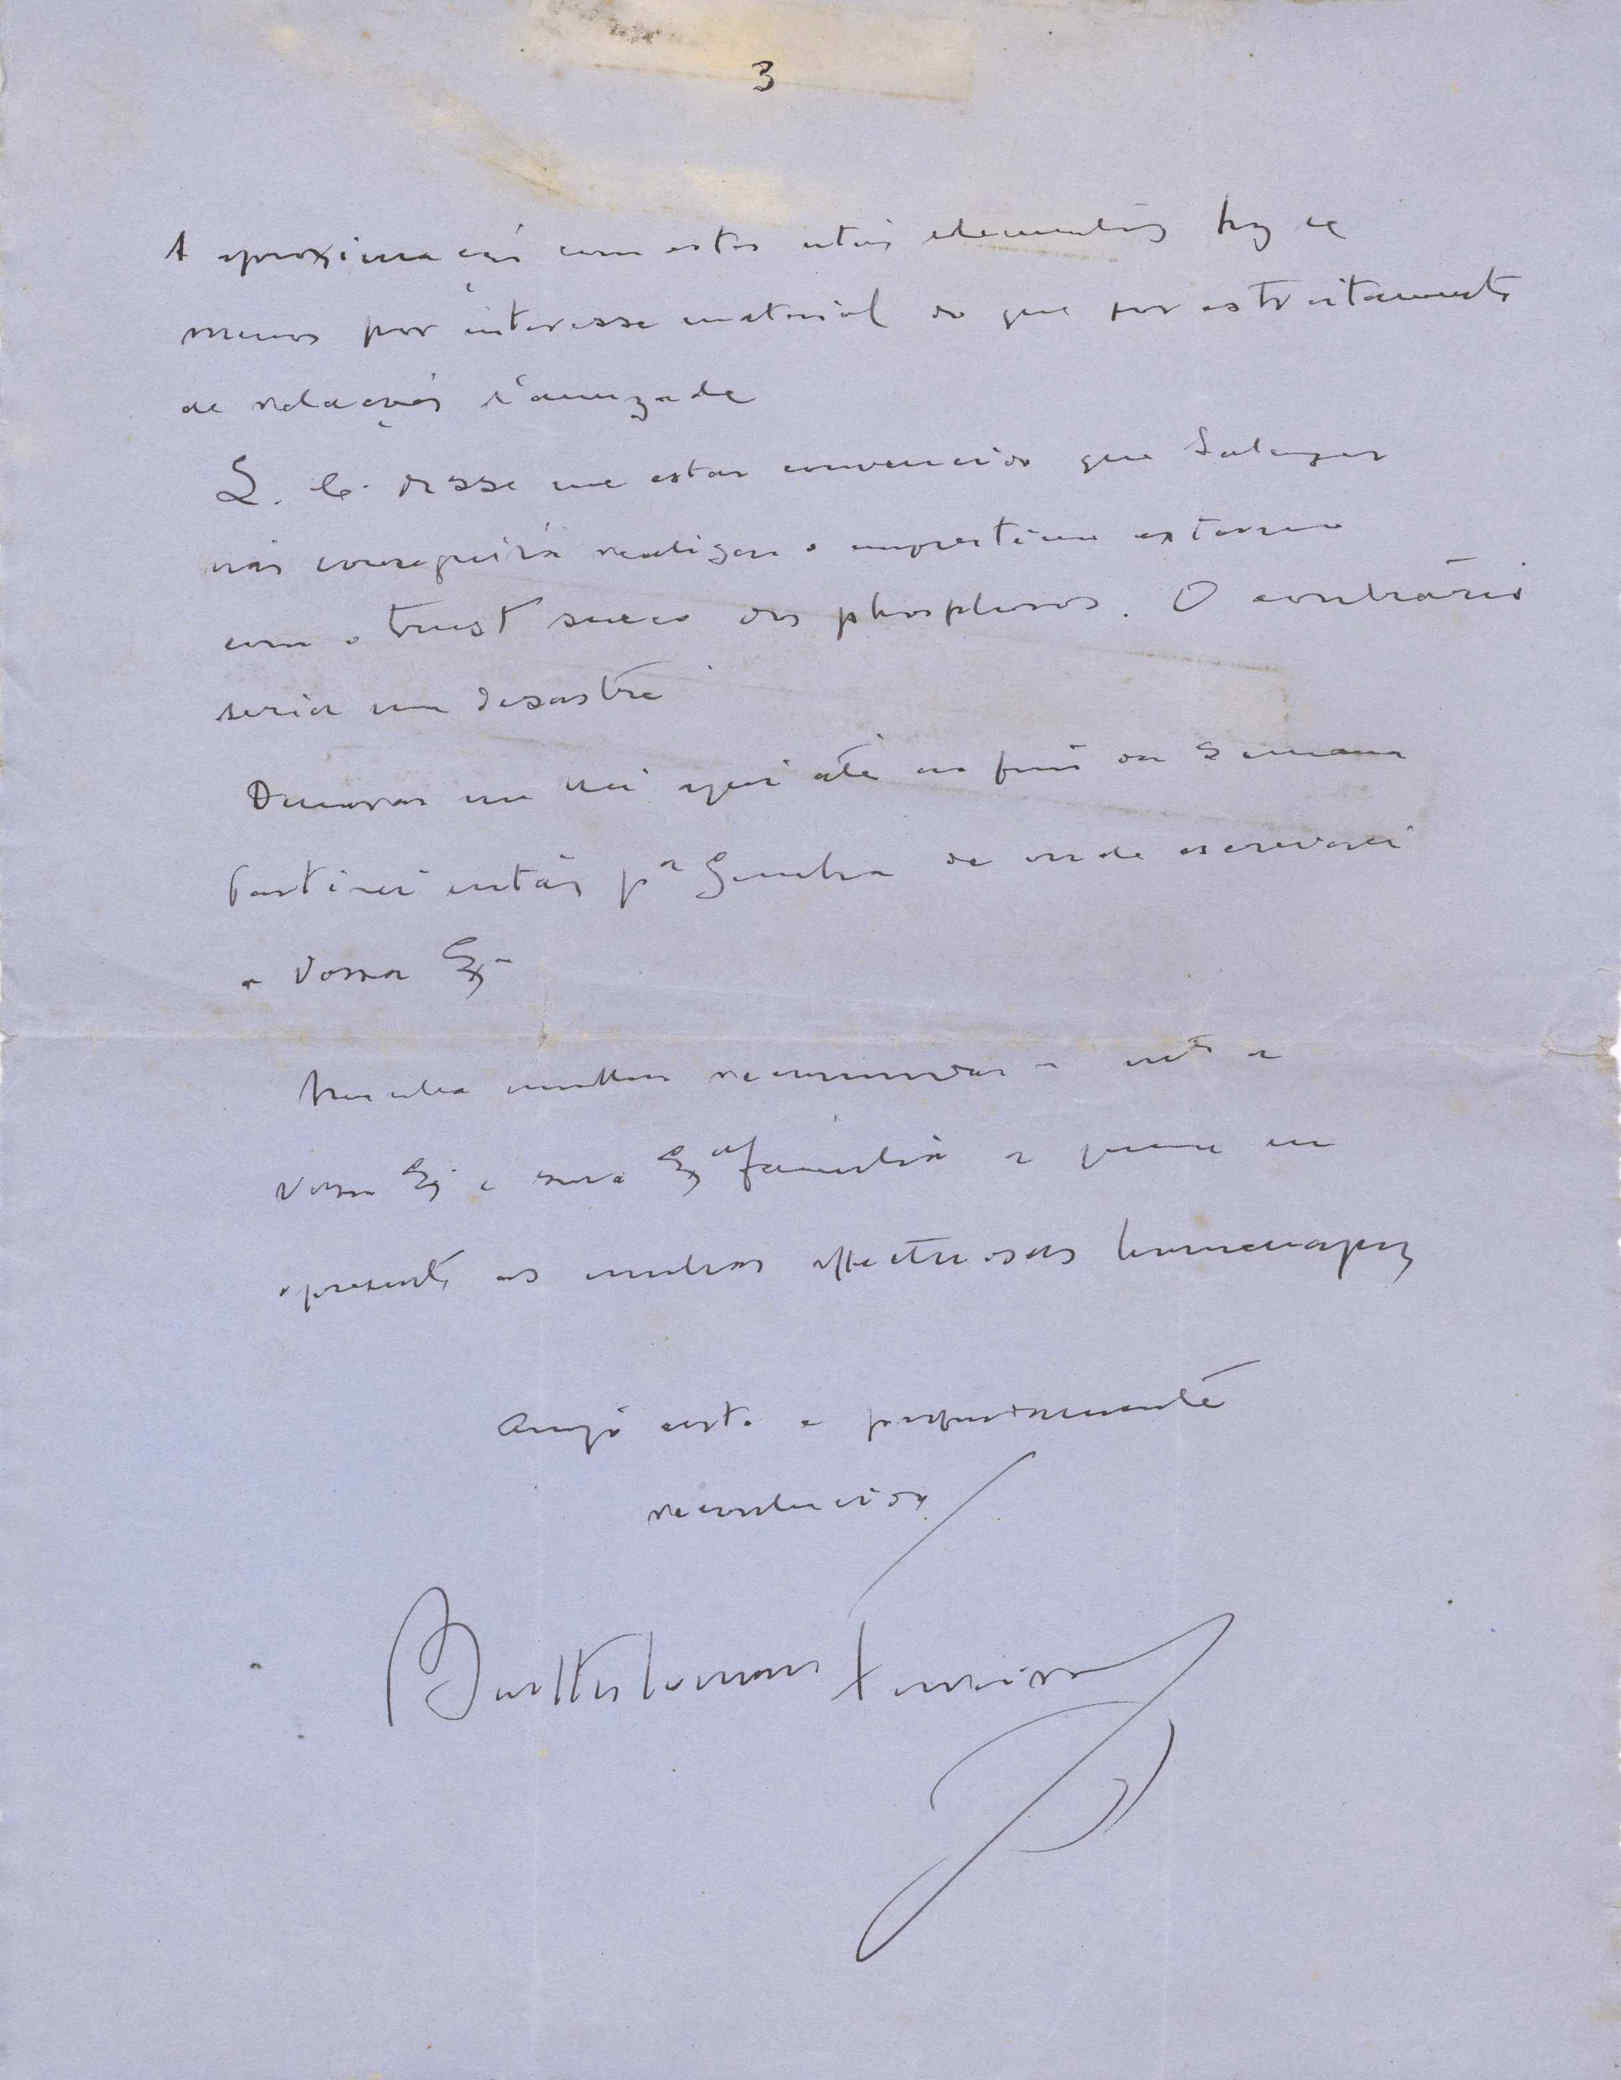 3
A aproximação com estes elementos fez se
menos por interesse material do que por estreitamento
de relações d'amizade
L. C. disse me estar convencido que Salazar
não conseguirá realizar o emprestimo externo
com o trust sueco dos phosphoros. O contrário
seria um desastre
Demorar me hei aqui até ao fim da semana
Partirei então pª Genebra de onde escreverei
a Vossa Exª
recommendar a
Vossa Exª e sua Exª familia a quem eu
apresento as minhas affectuosas homenagens
Amigo certo e profundamente
reconhecido
Bartholomeu Ferreira